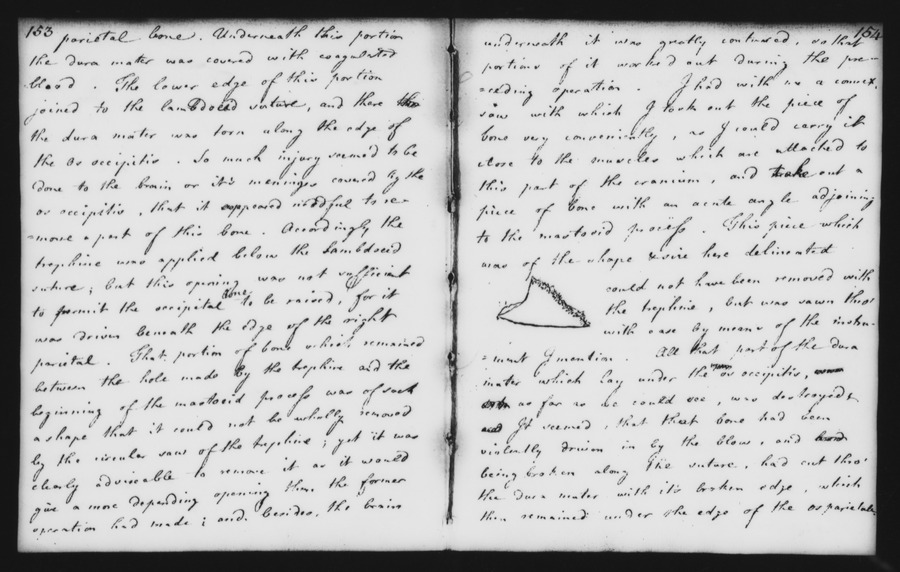 153
parietal bone. Underneath this portion
the dura mater was covered with coagulated
blood. The lower edge of this portion
joined to the lambdoid suture, and there
the dura mater was torn along the edge of
the os occipitis. So much injury seemed to be
done to the brain or it's meninges covered by the
os occipitis, that it appeared needful to re-
=move a part of this bone. Accordingly the
trephine was applied below the Lambdoid
suture; but this opening was not sufficient
to permit the occipital bone to be raised, for it
was driven beneath the edge of the right
parietal. That portion of bone which remained
between the hole made by the trephine and the
beginning of the mastoid process was of such
a shape that it could not be wholly removed
by the circular saw of the trephine; yet it was
clearly adviceable to remove it as it would
give a more depending opening than the former
operation had made; and besides, the brain
154
underneath it was greatly contused, so that
portions of it worked out during the pre-
=ceding operation. I had with me a convex
saw with which I took out the piece of
bone very conveniently, as I could carry it
close to the muscles which are attached to
this part of the cranium, and take out a
piece of bone with an acute angle adjoining
to the mastoid process. This piece which
was of the shape & size here delineated
could not have been removed with
the trephine, but was sawn thro'
with ease by means of the instru-
=ment I mention. All that part of the dura
mater which lay under the os occipitis,
as far as we could see, was destroyed.
It seemed, that that bone had been
violently driven in by the blow, and
being broken along the suture, had cut thro'
the dura mater with it's broken edge, which
then remained under the edge of the os parietale.